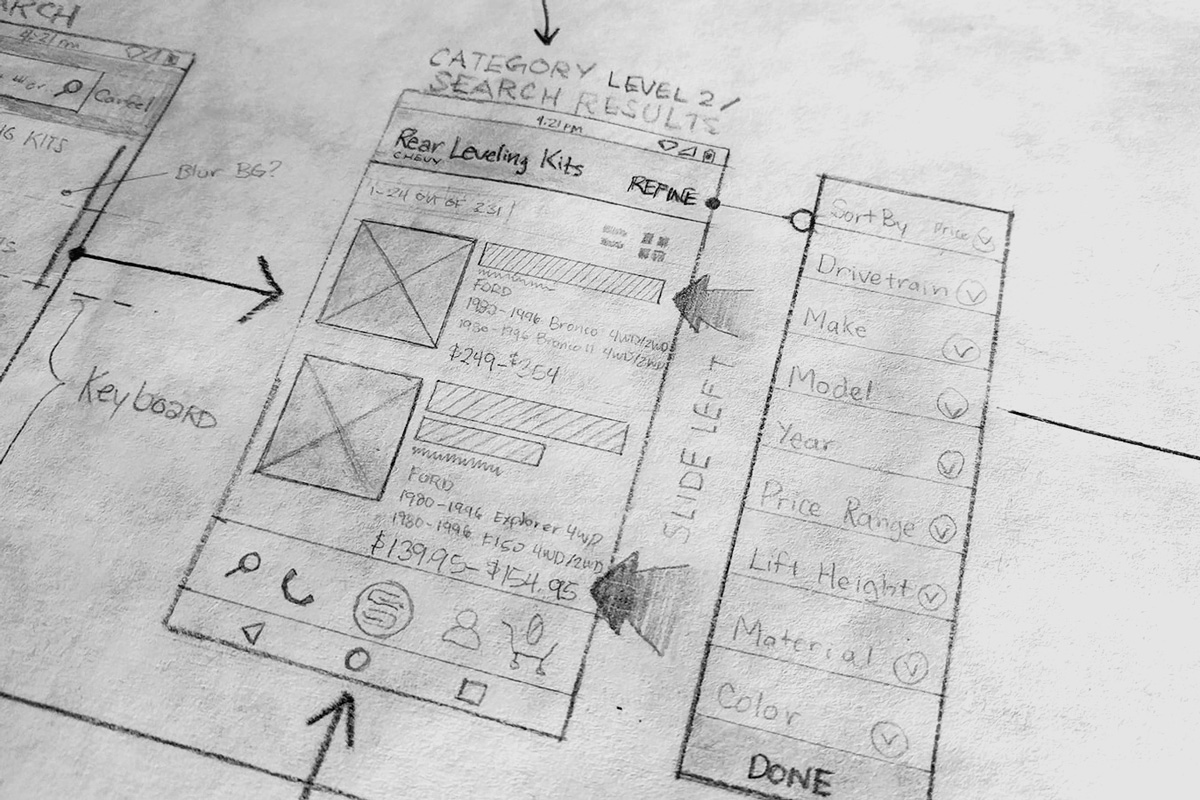 4:21 PM
Cancel
KITS
Blur BG?
Keyboard
CATEGORY LEVEL 2 /
SEARCH RESULTS
4:21 PM
Rear Leveling Kits
CHEVY
REFINE
1-24 OUT OF 231
FORD
1980-1996 Bronco 4WD/2WD
1980-1996 Bronco II 4WD/2WD
$249-$354
FORD
1980-1996 Explorer 4WD
1980-1996 F150 4WD/2WD
$139.95-$154.95
0
SLIDE LEFT
Sort By Price
Drivetrain
Make
Model
Year
Price Range
Lift Height
Material
Color
DONE